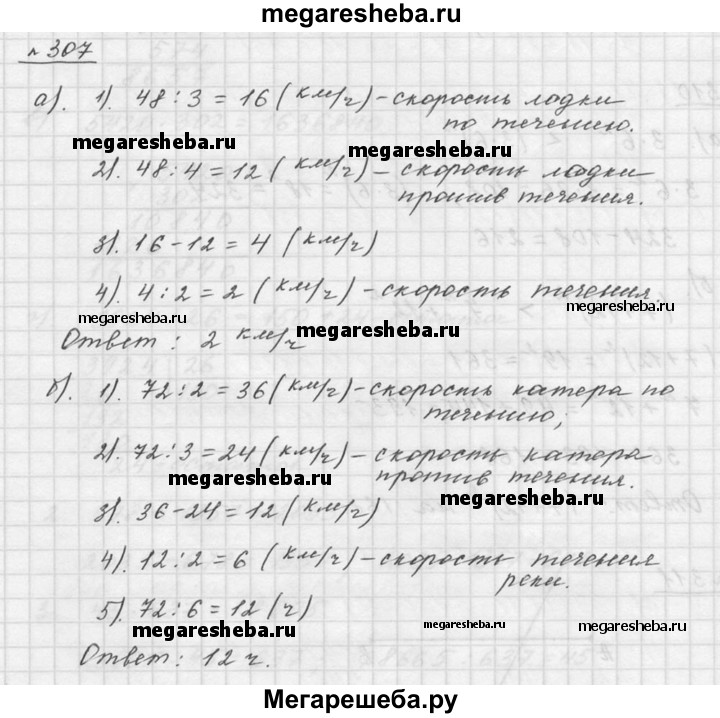 megaresheba.ru
№ 307
а). 1). 48 : 3 = 16 (км/ч) – скорость лодки
по течению.
megaresheba.ru
2). 48 : 4 = 12 (км/ч) – скорость лодки
megaresheba.ru
против течения.
3). 16 – 12 = 4 (км/ч)
4). 4 : 2 = 2 (км/ч) – скорость течения.
megaresheba.ru
megaresheba.ru
Ответ: 2 км/ч
megaresheba.ru
б). 1). 72 : 2 = 36 (км/ч) – скорость катера по
течению;
2). 72 : 3 = 24 (км/ч) – скорость катера
против течения.
megaresheba.ru
megaresheba.ru
3). 36 – 24 = 12 (км/ч)
4). 12 : 2 = 6 (км/ч) – скорость течения
реки.
5). 72 : 6 = 12 (ч)
megaresheba.ru
megaresheba.ru
megaresheba.ru
Ответ: 12 ч.
Мегарешеба.ру